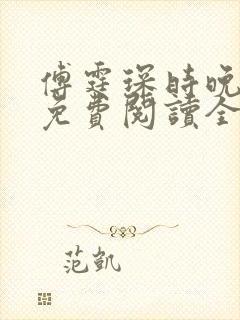 傅霆琛時晚
免費閱讀全
范凱